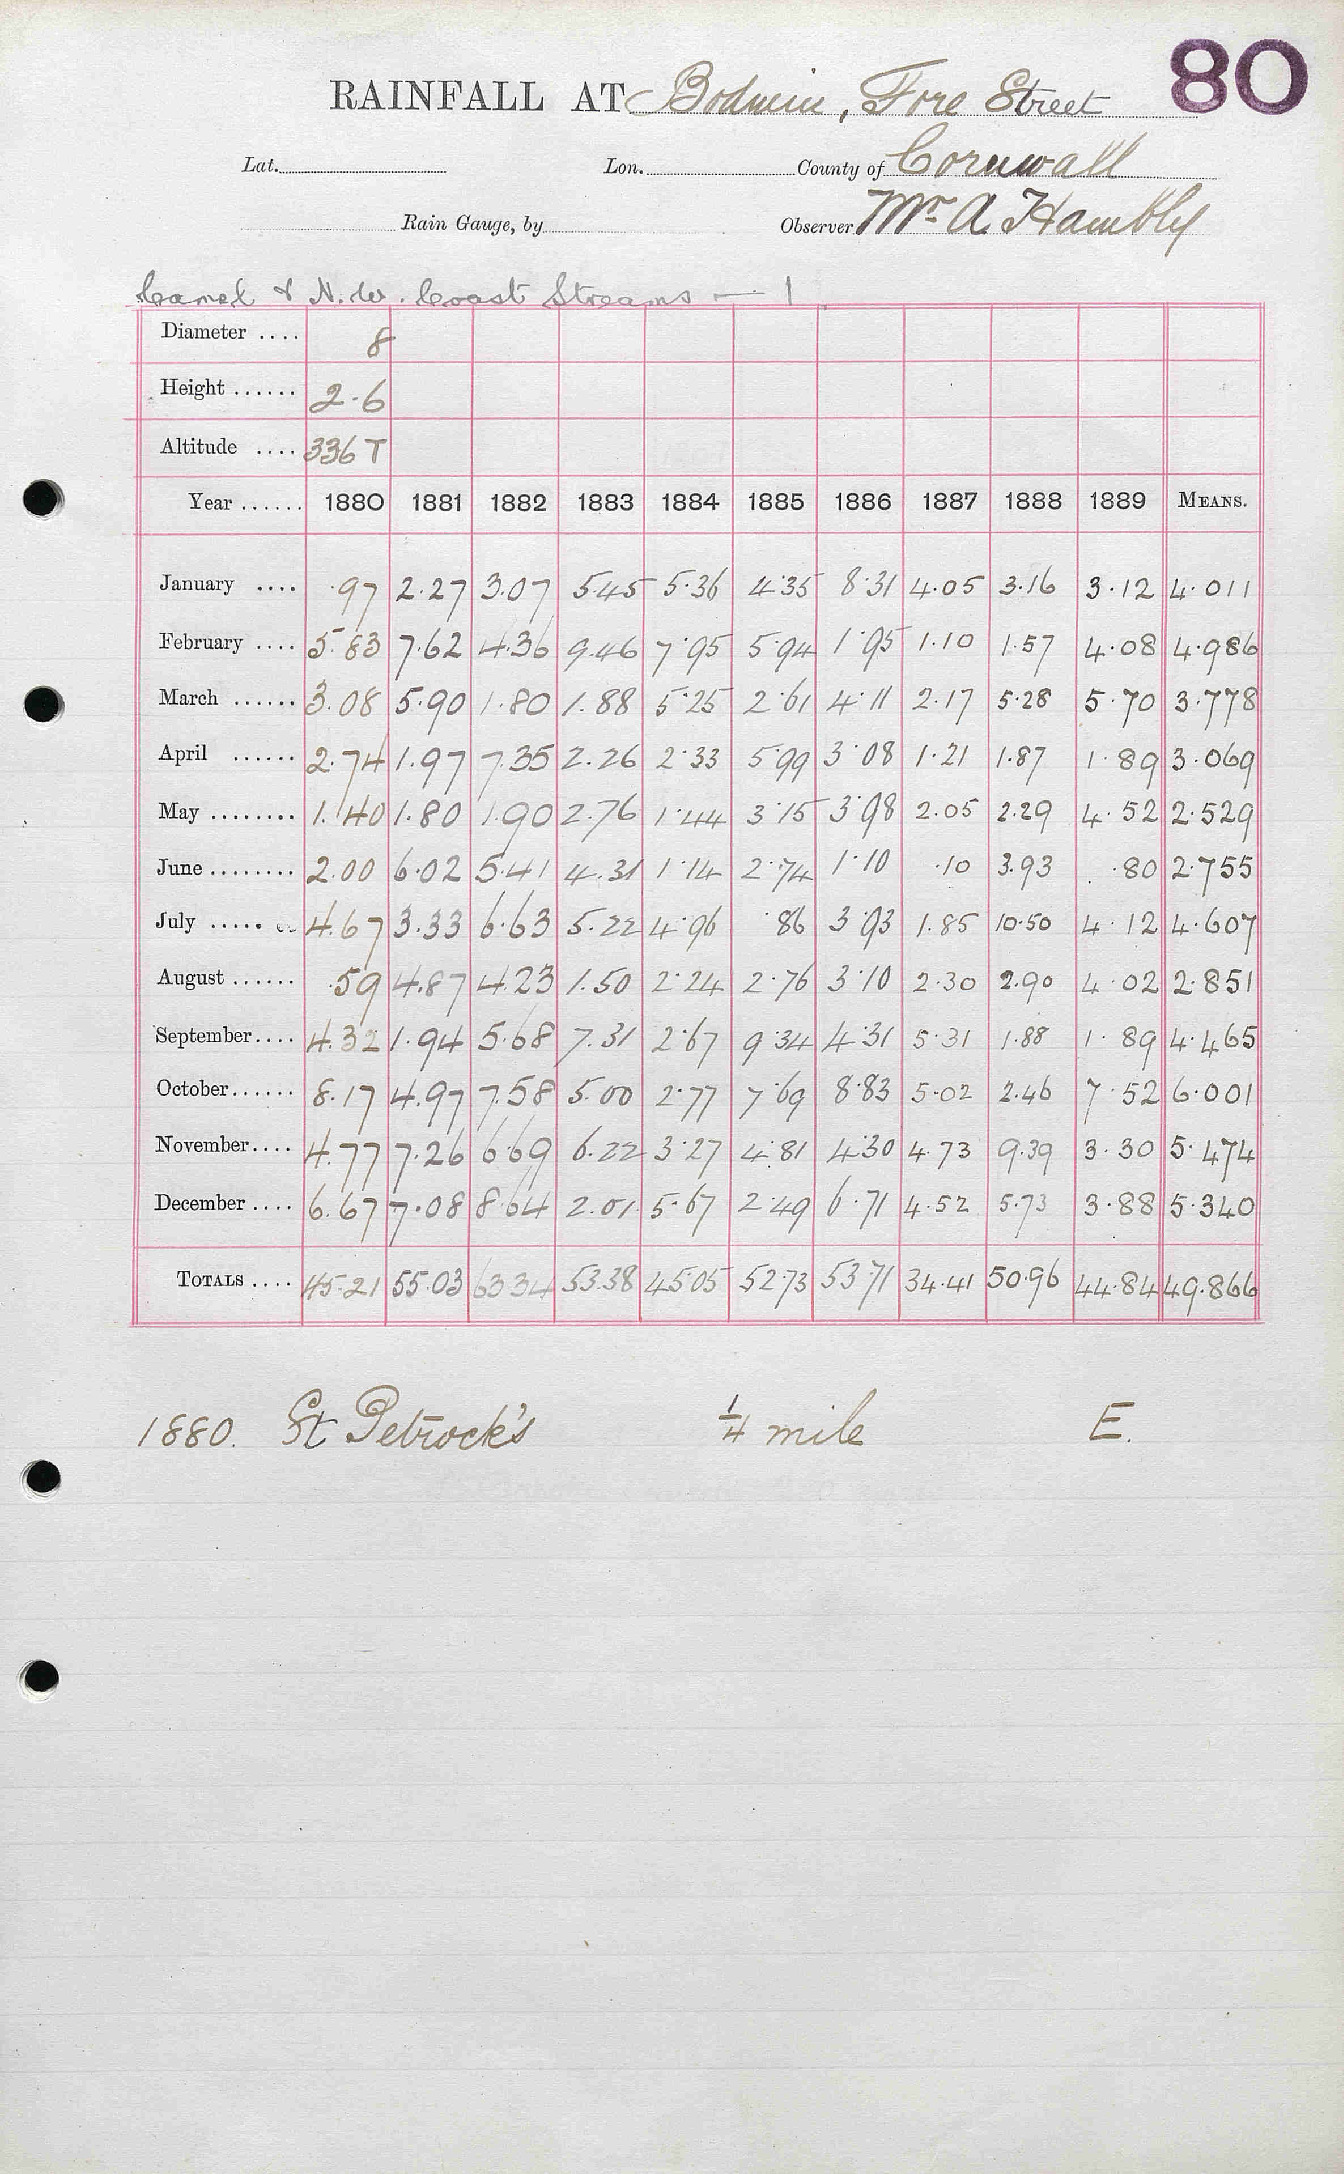 80
RAINFALL AT Bodmin, Fore Street
Lat. Lon. County of Cornwall
Rain Gauge, by Observer Mr A Hambly
Camel & N.W. Coast Streams — 1
Diameter .... 8
Height ...... 2.6
Altitude .... 336 T
Year ...... 1880 1881 1882 1883 1884 1885 1886 1887 1888 1889 MEANS.
January .... .97 2.27 3.07 5.45 5.36 4.35 8.31 4.05 3.16 3.12 4.011
February .... 5.83 7.62 4.36 9.46 7.95 5.94 1.95 1.10 1.57 4.08 4.986
March ...... 3.08 5.90 1.80 1.88 5.25 2.61 4.11 2.17 5.28 5.70 3.778
April ...... 2.74 1.97 7.35 2.26 2.33 5.99 3.08 1.21 1.87 1.89 3.069
May ........ 1.40 1.80 1.90 2.76 1.44 3.15 3.98 2.05 2.29 4.52 2.529
June ........ 2.00 6.02 5.41 4.31 1.14 2.74 1.10 .10 3.93 .80 2.755
July ..... 4.67 3.33 6.63 5.22 4.96 .86 3.93 1.85 10.50 4.12 4.607
August ...... .59 4.87 4.23 1.50 2.24 2.76 3.10 2.30 2.90 4.02 2.851
September.... 4.32 1.94 5.68 7.31 2.67 9.34 4.31 5.31 1.88 1.89 4.465
October...... 8.17 4.97 7.58 5.00 2.77 7.69 8.83 5.02 2.46 7.52 6.001
November.... 4.77 7.26 6.69 6.22 3.27 4.81 4.30 4.73 9.39 3.30 5.474
December .... 6.67 7.08 8.64 2.01 5.67 2.49 6.71 4.52 5.73 3.88 5.340
TOTALS .... 45.21 55.03 63.34 53.38 45.05 52.73 53.71 34.41 50.96 44.84 49.866
1880. St Petrock's ¼ mile E.